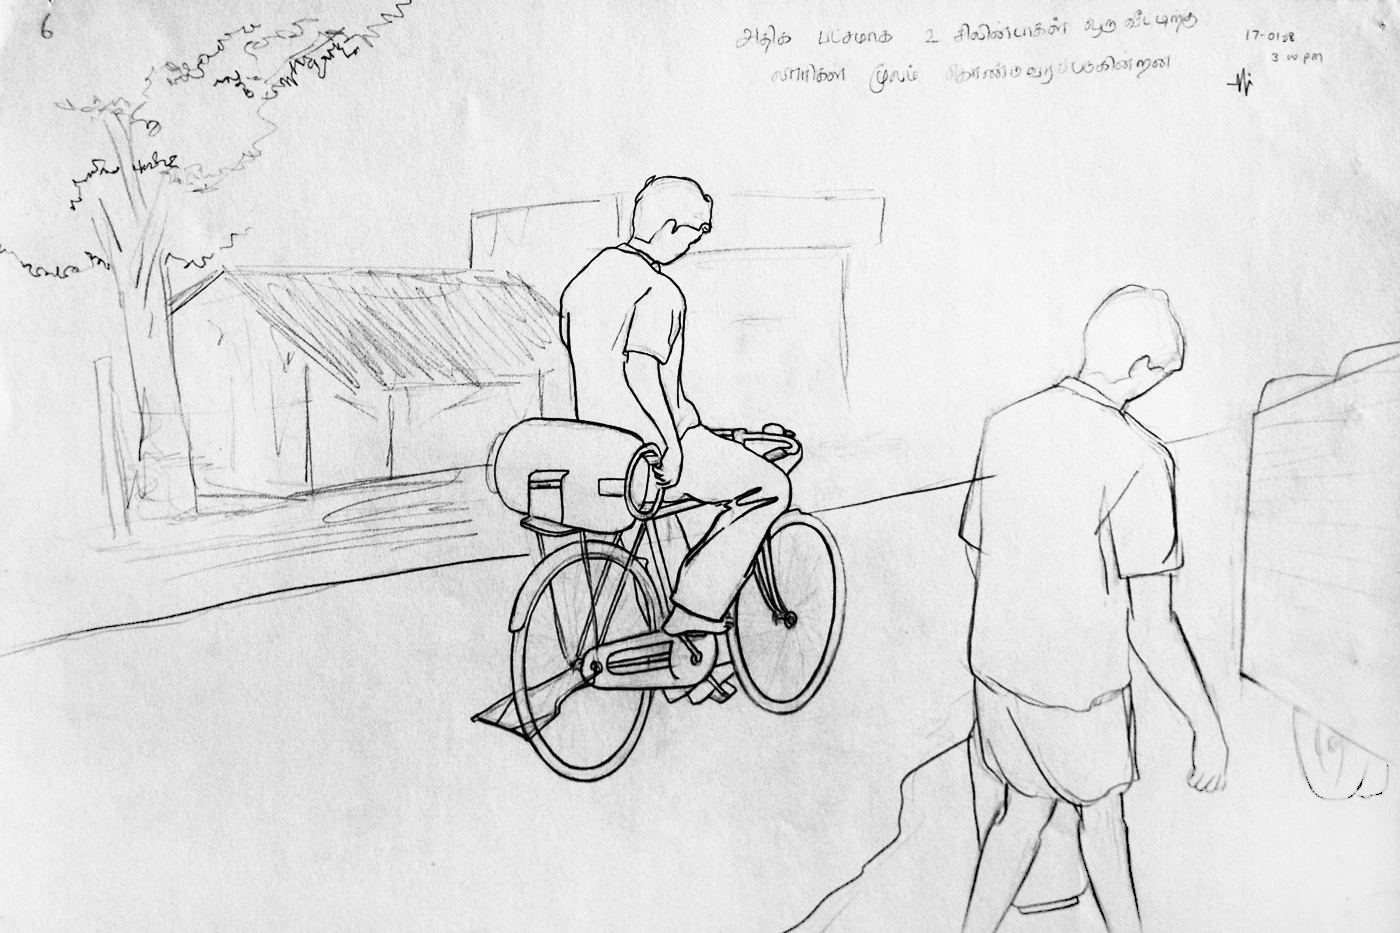 6
அதிக பட்சமாக 2 சிலின்டர்கள் ஒரு வீட்டிற்கு
லாரிகள் மூலம் கொண்டுவரப்படுகின்றன
17-01-
3 pm